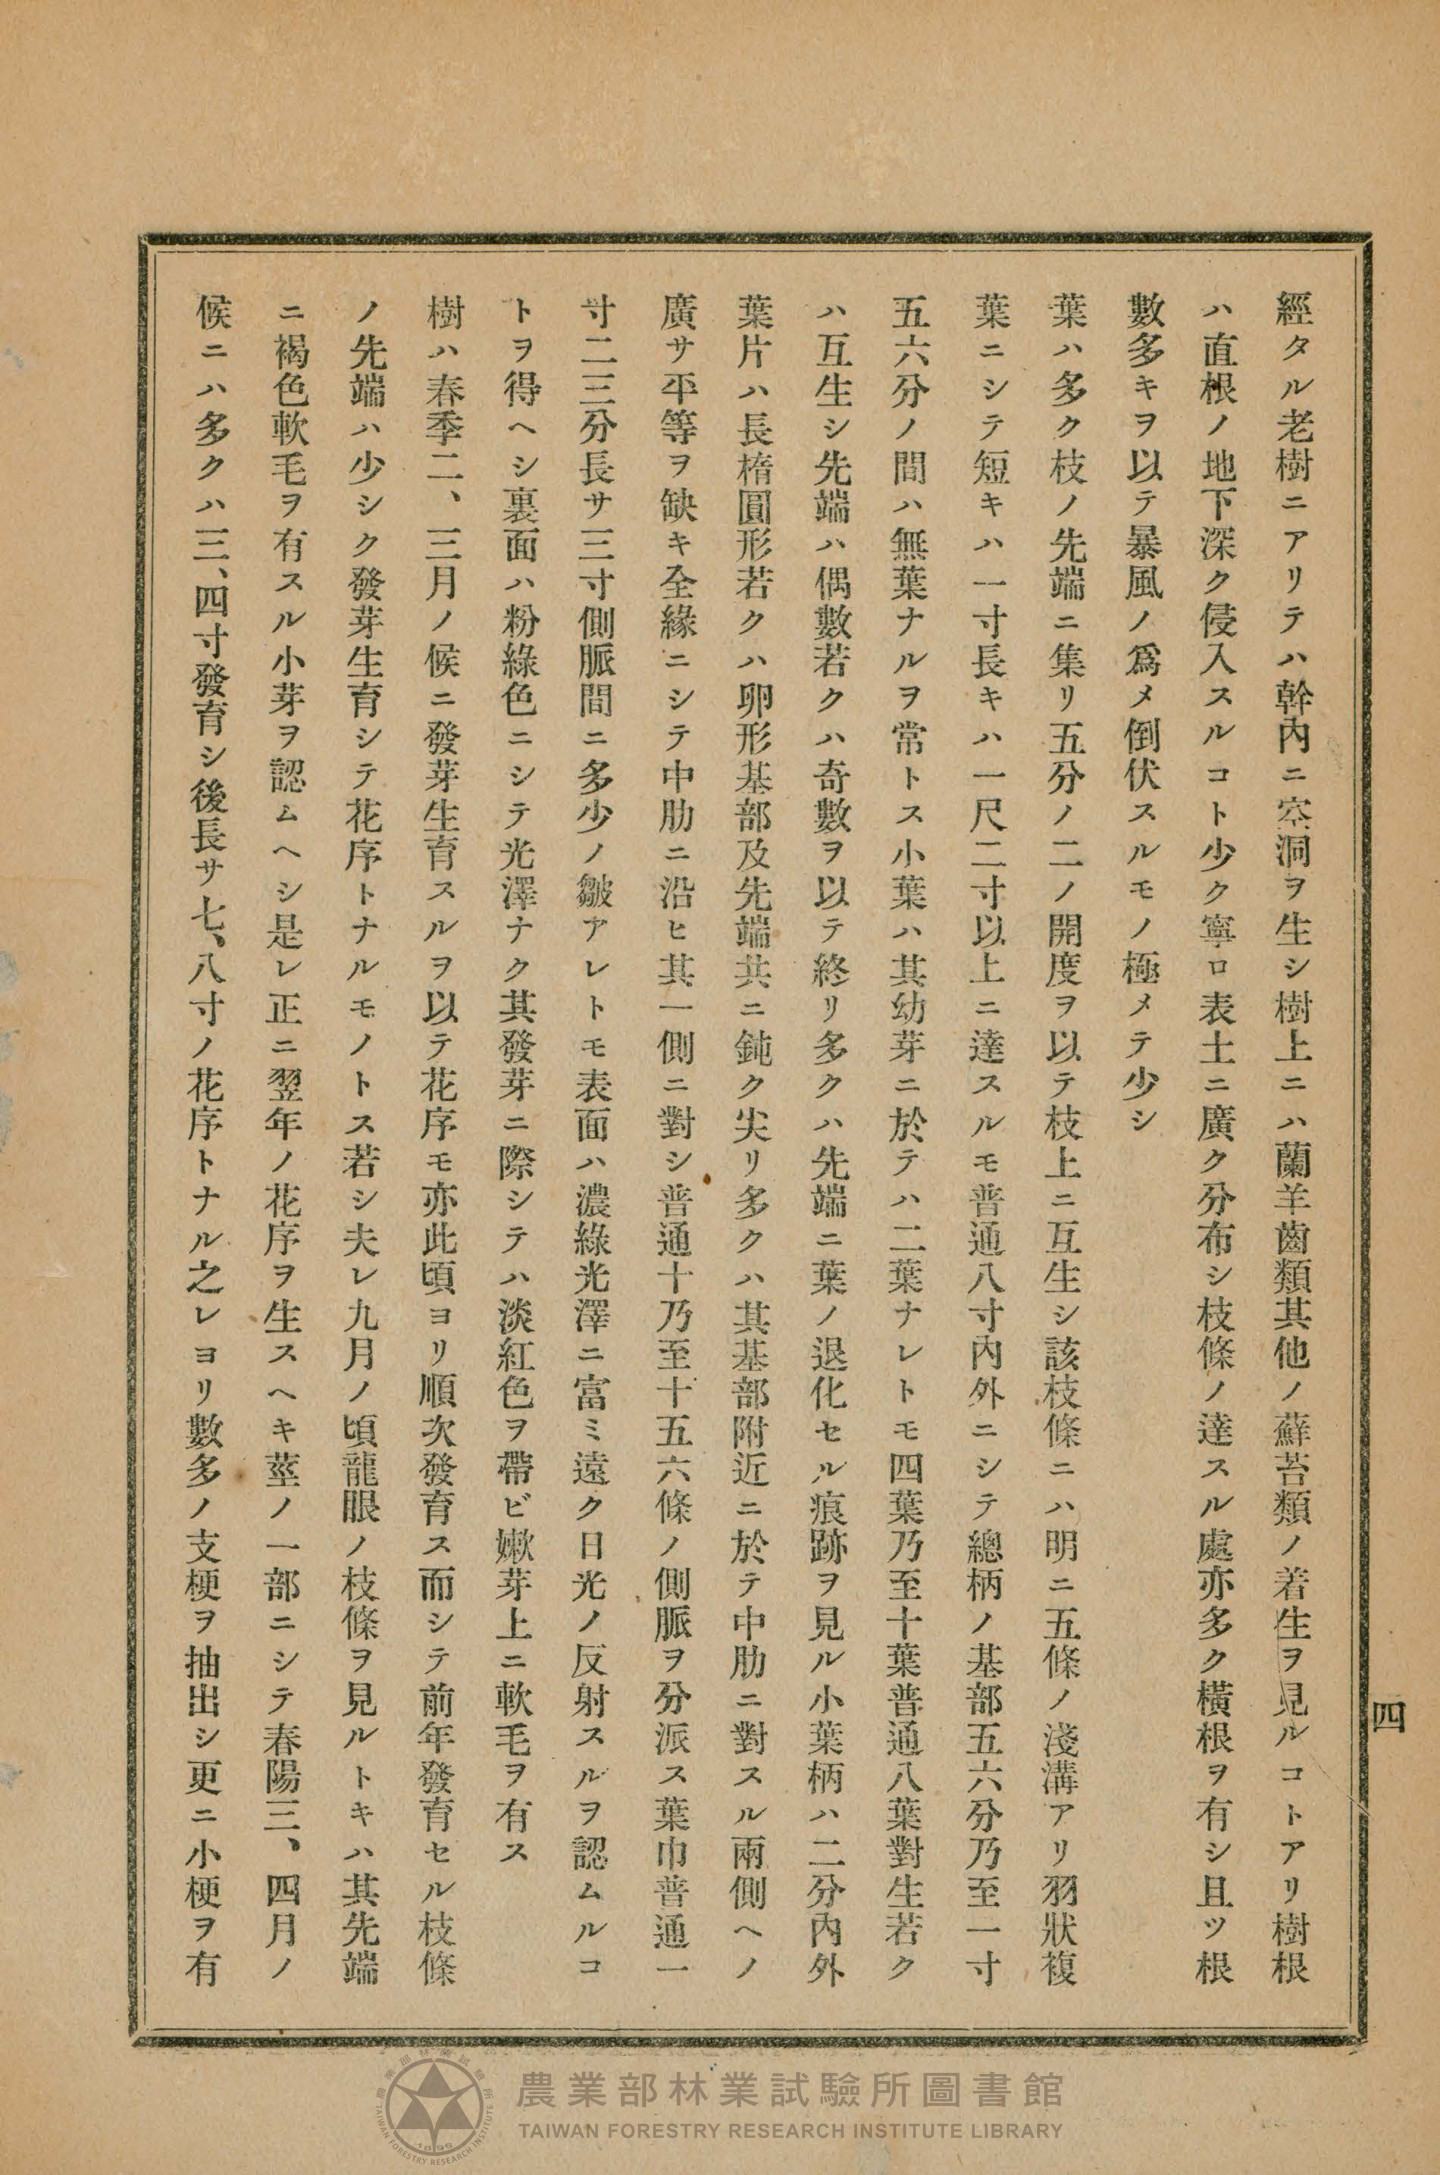 經タル老樹ニアリテハ幹內ニ空洞ヲ生シ樹上ニハ蘭羊齒類其他ノ蘇苔類ノ着生ヲ見ルコトアリ樹根
ハ直根ノ地下深ク侵入スルコト少ク寧ロ表土ニ廣ク分布シ枝條ノ達スル處亦多ク橫根ヲ有シ且ツ根
數多キヲ以テ暴風ノ爲メ倒伏スルモノ極メテ少シ
葉ハ多ク枝ノ先端ニ集リ五分ノ二ノ開度ヲ以テ枝上ニ互生シ該枝條ニハ明ニ五條ノ淺溝アリ羽狀複
葉ニシテ短キハ一寸長キハ一尺二寸以上ニ達スルモ普通八寸內外ニシテ總柄ノ基部五六分乃至一寸
五六分ノ間ハ無葉ナルヲ常トス小葉ハ其幼芽ニ於テハ二葉ナレトモ四葉乃至十葉普通八葉對生若ク
ハ互生シ先端ハ偶數若クハ奇數ヲ以テ終リ多クハ先端ニ葉ノ退化セル痕跡ヲ見ル小葉柄ハ二分內外
葉片ハ長楕圓形若クハ卵形基部及先端共ニ鈍ク尖リ多クハ其基部附近ニ於テ中肋ニ對スル兩側ヘノ
廣サ平等ヲ缺キ全緣ニシテ中肋ニ沿ヒ其一側ニ對シ普通十乃至十五六條ノ側脈ヲ分派ス葉巾普通一
寸二三分長サ三寸側脈間ニ多少ノ皺アレトモ表面ハ濃綠光澤ニ富ミ遠ク日光ノ反射スルヲ認ムルコ
トヲ得ヘシ裏面ハ粉綠色ニシテ光澤ナク其發芽ニ際シテハ淡紅色ヲ帶ビ嫩芽上ニ軟毛ヲ有ス
樹ハ春季二、三月ノ候ニ發芽生育スルヲ以テ花序モ亦此頃ヨリ順次發育ス而シテ前年發育セル枝條
ノ先端ハ少シク發芽生育シテ花序トナルモノトス若シ夫レ九月ノ頃龍眼ノ枝條ヲ見ルトキハ其先端
ニ褐色軟毛ヲ有スル小芽ヲ認ムヘシ是レ正ニ翌年ノ花序ヲ生スヘキ莖ノ一部ニシテ春陽三、四月ノ
候ニハ多クハ三、四寸發育シ後長サ七、八寸ノ花序トナル之レヨリ數多ノ支梗ヲ抽出シ更ニ小梗ヲ有
四
農業部林業試驗所圖書館
TAIWAN FORESTRY RESEARCH INSTITUTE LIBRARY
農業部林業試驗所
TAIWAN FORESTRY RESEARCH INSTITUTE
1896